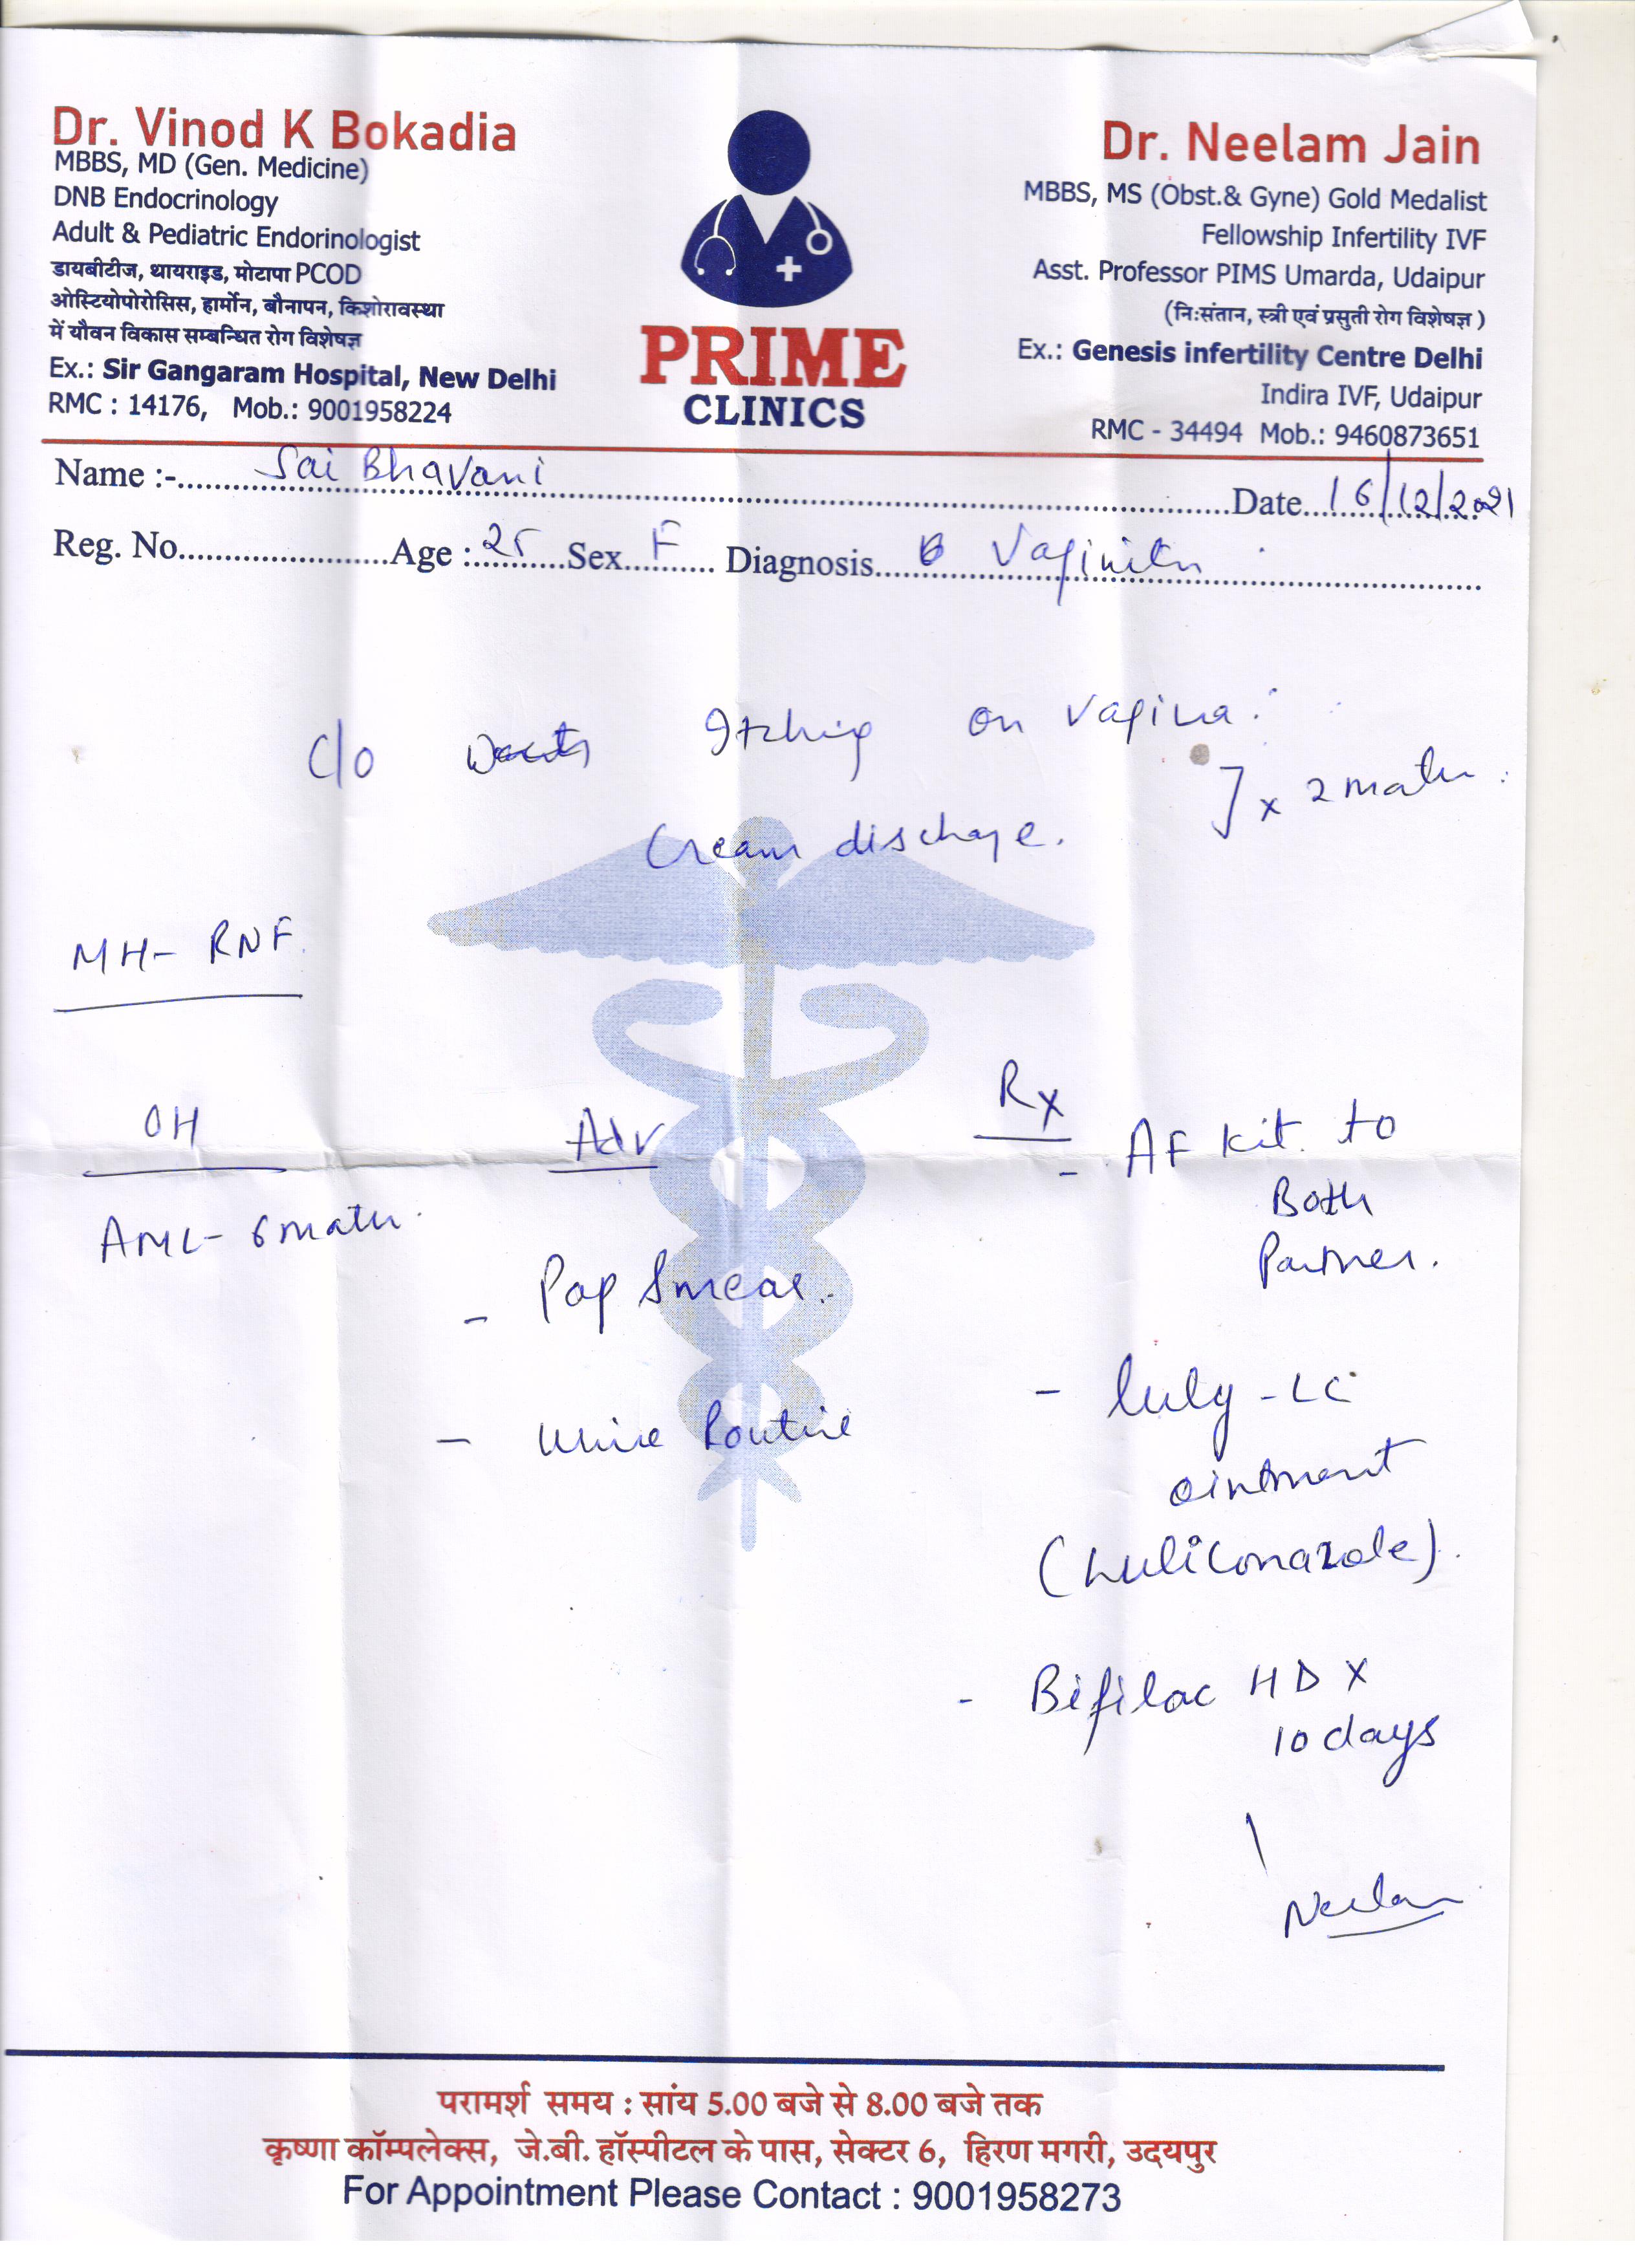 Dr. Vinod K Bokadia
MBBS, MD (Gen. Medicine)
DNB Endocrinology
Adult & Pediatric Endorinologist
डायबीटीज, थायराइड, मोटापा PCOD
ओस्टियोपोरोसिस, हार्मोन, बौनापन, किशोरावस्था
में यौवन विकास सम्बन्धित रोग विशेषज्ञ
Ex.: Sir Gangaram Hospital, New Delhi
RMC : 14176, Mob.: 9001958224
PRIME
CLINICS
Dr. Neelam Jain
MBBS, MS (Obst.& Gyne) Gold Medalist
Fellowship Infertility IVF
Asst. Professor PIMS Umarda, Udaipur
(नि:संतान, स्त्री एवं प्रसुती रोग विशेषज्ञ )
Ex.: Genesis infertility Centre Delhi
Indira IVF, Udaipur
RMC - 34494 Mob.: 9460873651
Name :- Sai Bhavani Date 16/12/2021
Reg. No. Age : 25 Sex F Diagnosis Vaginitis
C/o Itching on vagina.
] x 2 months.
Cream discharge.
MH- RNF.
OH
AML- 6 months.
Adv
- Pap Smear.
- Urine Routine
Rx
- AF Kit to
Both
Partner.
- luly - LC
ointment
(Luliconazole).
- Bifilac HD X
10 days
Neelam
परामर्श समय : सांय 5.00 बजे से 8.00 बजे तक
कृष्णा कॉम्पलेक्स, जे.बी. हॉस्पीटल के पास, सेक्टर 6, हिरण मगरी, उदयपुर
For Appointment Please Contact : 9001958273